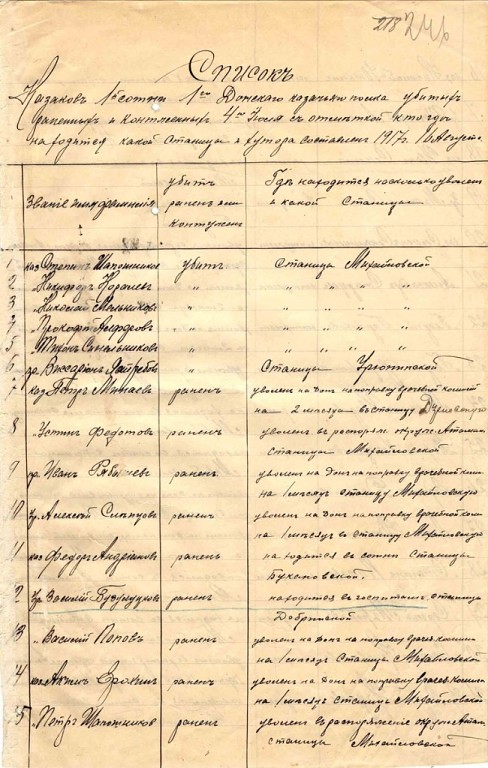 218 246
Списокъ
Казаковъ 1й сотни 1го Донского казачьяго полка убитыхъ
раненныхъ и контуженныхъ 4го Июля съ отметкой кто где
находится какой Станицы и хутора составленъ 1917г. 16 Августа
Званіе имя фамилия
убитъ
раненъ или
контуженъ
Где находится на сколько уволенъ
и какой Станицы
1 каз Степанъ Шапошников убитъ Станица Михайловской
2 " Никифоръ Карачев " " " "
3 " Николай Мельников " " " "
4 " Прокофий " " " "
5 " Тихонъ Синельников " " " "
6 " Станицы Урюпинской
7 каз Петръ Минаевъ раненъ уволенъ на Донъ на поправку врачебной комисией
на 2 месяца в станицу
8 " Устинъ Федотовъ раненъ уволенъ въ распоряж. окруж. Атамана
Станицы Михайловской
9 пр. Иванъ Рябычевъ раненъ уволенъ на Донъ на поправку врачебной комис.
на 1 месяцъ станицу Михайловскую
10 Алексей раненъ уволенъ на Донъ на поправку врачебной комис.
на 1 месяцъ въ станицу Михайловскую
11 каз Федоръ Андріяновъ раненъ находится въ сотни Станицы
Букановской.
12 Василий раненъ находится въ госпитале станицы
Добринской
13 " Василий Поповъ раненъ уволенъ на Донъ на поправку врачеб. комис.
на 1 месяцъ Станицы Михайловской
14 каз. Ерохинъ раненъ уволенъ на Донъ на поправку врачеб. комис.
на 1 месяцъ Станицы Михайловской
15 " Петръ Шапошников раненъ уволенъ въ распоряжение окруж. Атам.
станицы Михайловской